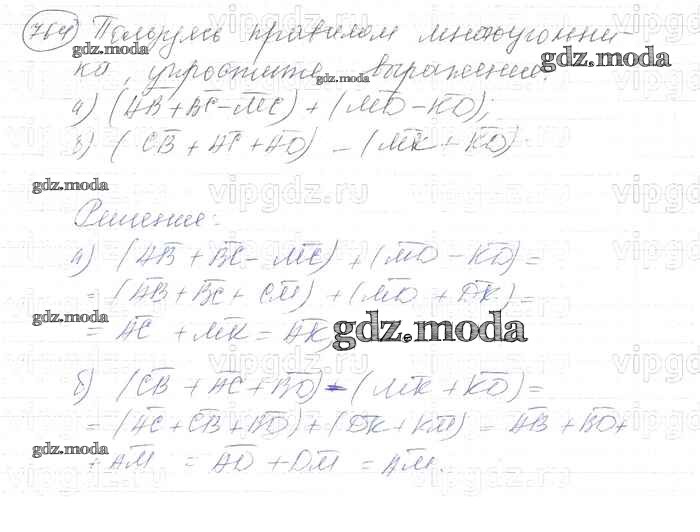 764 Пользуясь правилом многоугольни-
ка, упростите выражение:
а) (AB + BC - MC) + (MD - KD);
б) (CB + AC + AD) - (MK + KD)
Решение:
а) (AB + BC - MC) + (MD - KD) =
= (AB + BC + CM) + (MD + DK) =
= AC + MK = AK
б) (CB + AC + BD) - (MK + KD) =
= (AC + CB + BD) + (DK + KM) = AB + BD +
+ AM = AD + DM = AM.
gdz.moda
gdz.moda
gdz.moda
gdz.moda
gdz.moda
gdz.moda
gdz.moda
vipgdz.ru